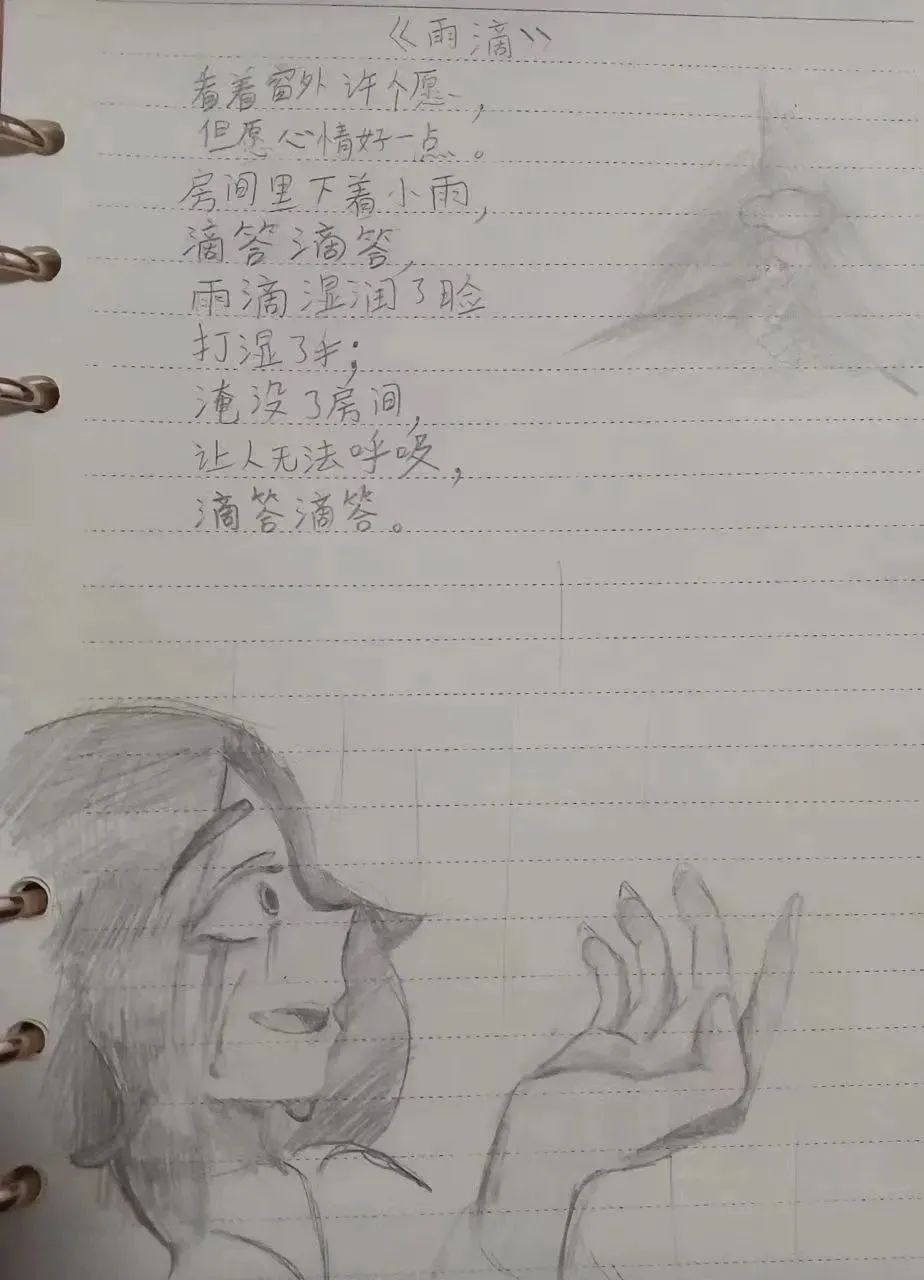 《雨滴》
看着窗外许个愿，
但愿心情好一点。
房间里下着小雨，
滴答滴答，
雨滴湿润了脸
打湿了手；
淹没了房间，
让人无法呼吸，
滴答滴答。